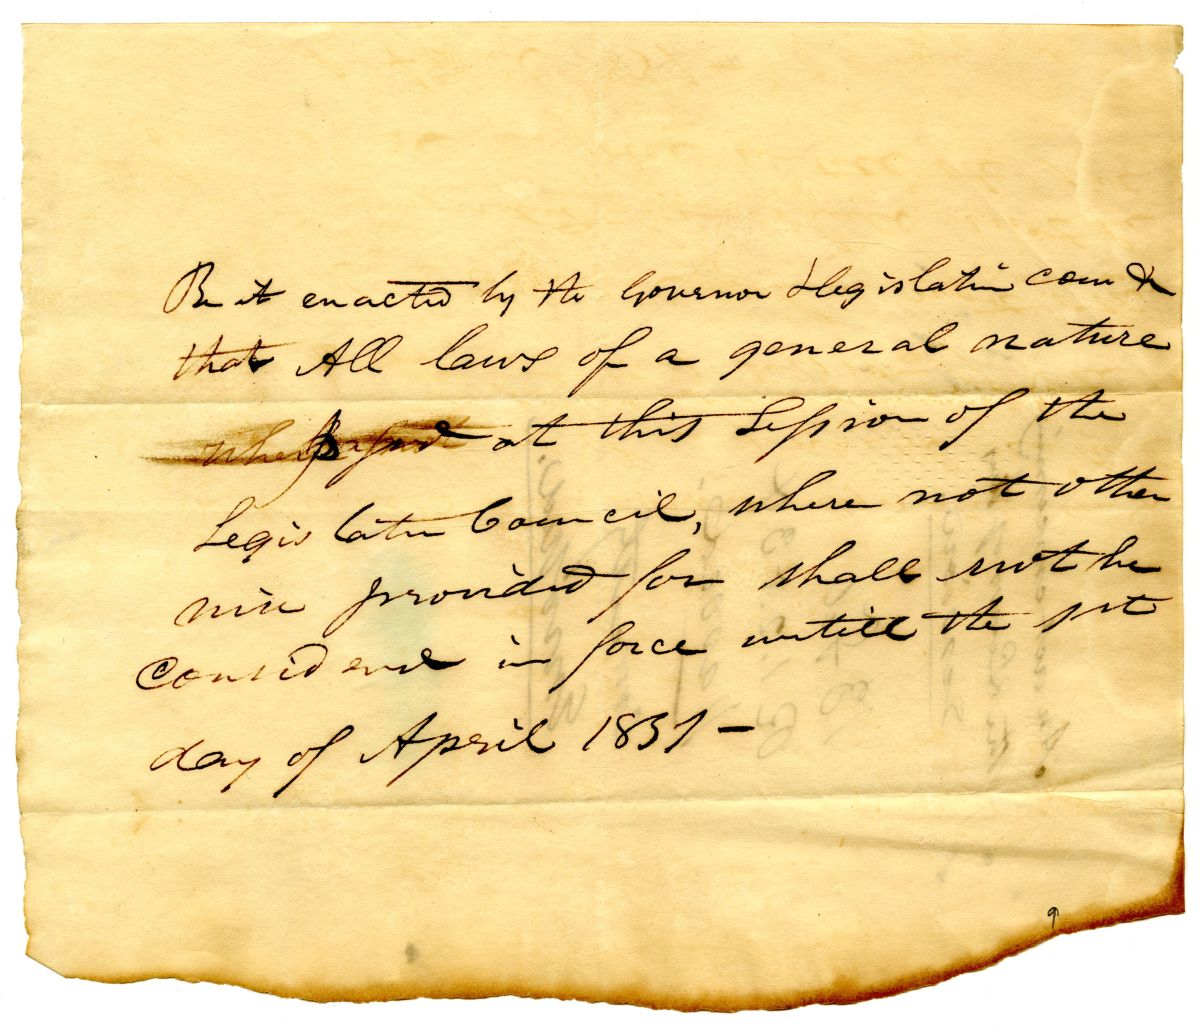 Be it enacted by the Governor & Legislative coun &c
that All laws of a general nature
passed at this Session of the
Legislative Council, where not other
wise provided for shall not be
Considered in force untill the 1st
day of April 1831 –
9